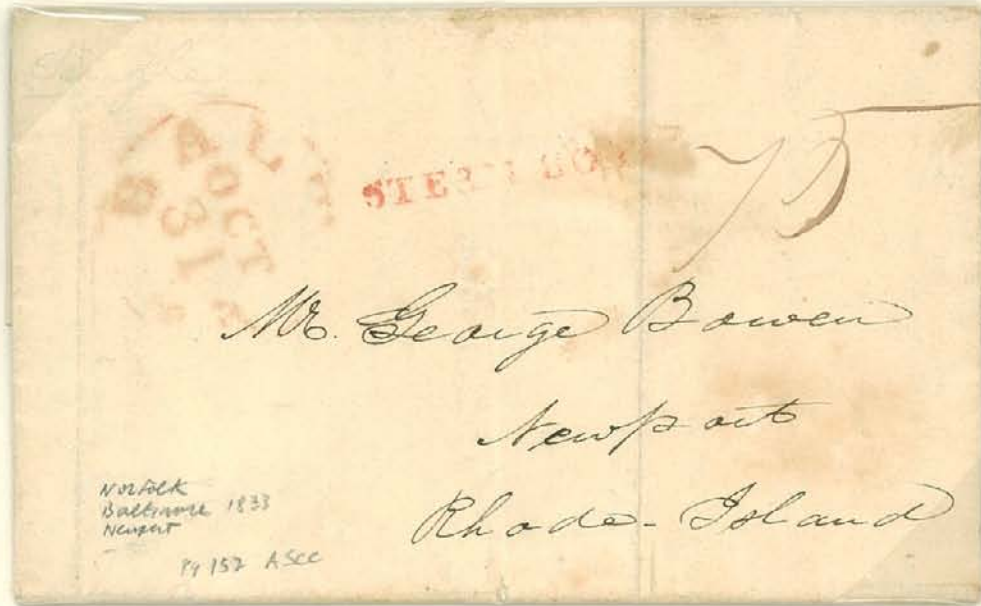 OCT
31
75
Mr. George Bowen
Newport
Rhode-Island
Norfolk
Baltimore 1833
Newport
Pg 157 ASCC